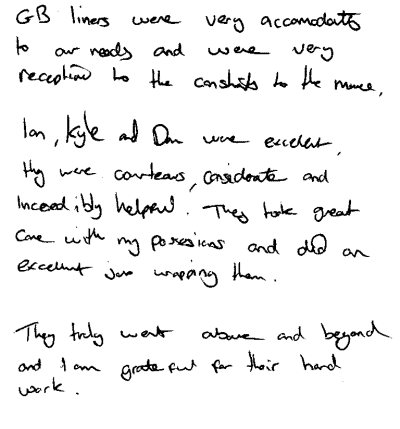 GB liners were very accomodating
to our needs and were very
receptive to the constraints to the move.
Ian, Kyle and Dan were excellent,
they were courteous, considerate and
incredibly helpful. They took great
care with my possesions and did an
excellent job wrapping them.
They truly went above and beyond
and I am grateful for their hard
work.